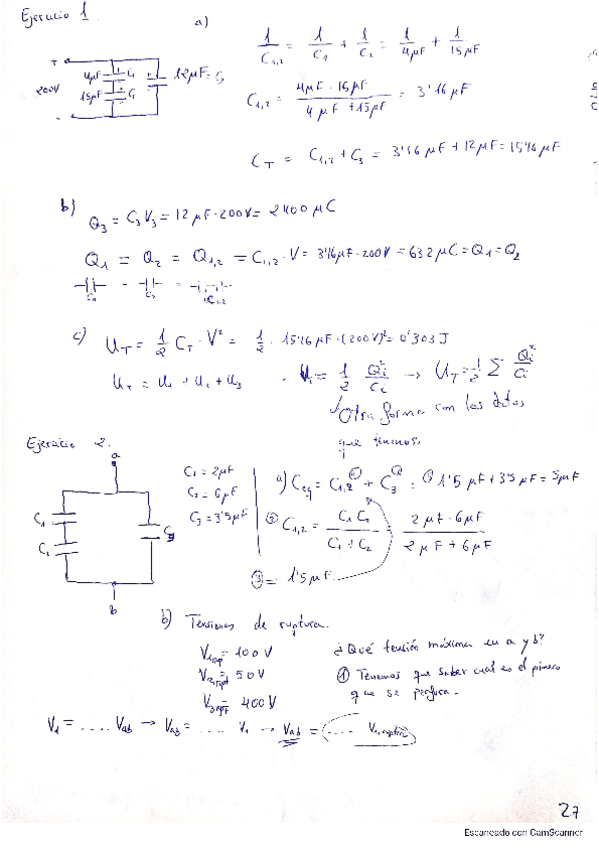 Ejercicio 1.
a)
1/C1,2 = 1/C1 + 1/C2 = 1/4μF + 1/15μF
200V
4μF C1
15μF C2
12μF = C3
C1,2 = 4μF · 15μF / 4μF + 15μF = 3'16 μF
CT = C1,2 + C3 = 3'16 μF + 12μF = 15'16 μF
b) Q3 = C3 V3 = 12μF · 200V = 2400 μC
Q1 = Q2 = Q1,2 = C1,2 · V = 3'16μF · 200V = 632 μC = Q1 = Q2
C1 C2 C1,2
c) UT = 1/2 CT · V² = 1/2 · 15'16 μF · (200V)² = 0'303 J
UT = U1 + U2 + U3 · Ui = 1/2 Qi²/Ci → UT = 1/2 Σ Qi²/Ci
Otra forma con los datos
que tenemos.
Ejercicio 2.
a
C1
C2
C3
b
C1 = 2μF
C2 = 6μF
C3 = 3'5μF
a) Ceq = C1,2 + C3 = 1'5 μF + 3'5 μF = 5μF
② C1,2 = C1 C2 / C1 + C2 = 2 μF · 6μF / 2 μF + 6 μF
③ = 1'5 μF
b) Tensiones de ruptura.
V1rup = 100 V
V2rupt = 50 V
V3rupt = 400 V
¿Qué tensión máxima en a y b?
① Tenemos que saber cual es el primero
que se perfora.
V1 = .... Vab → Vab = .... V1 → Vab = .... V1,ruptura
27
Escaneado con CamScanner